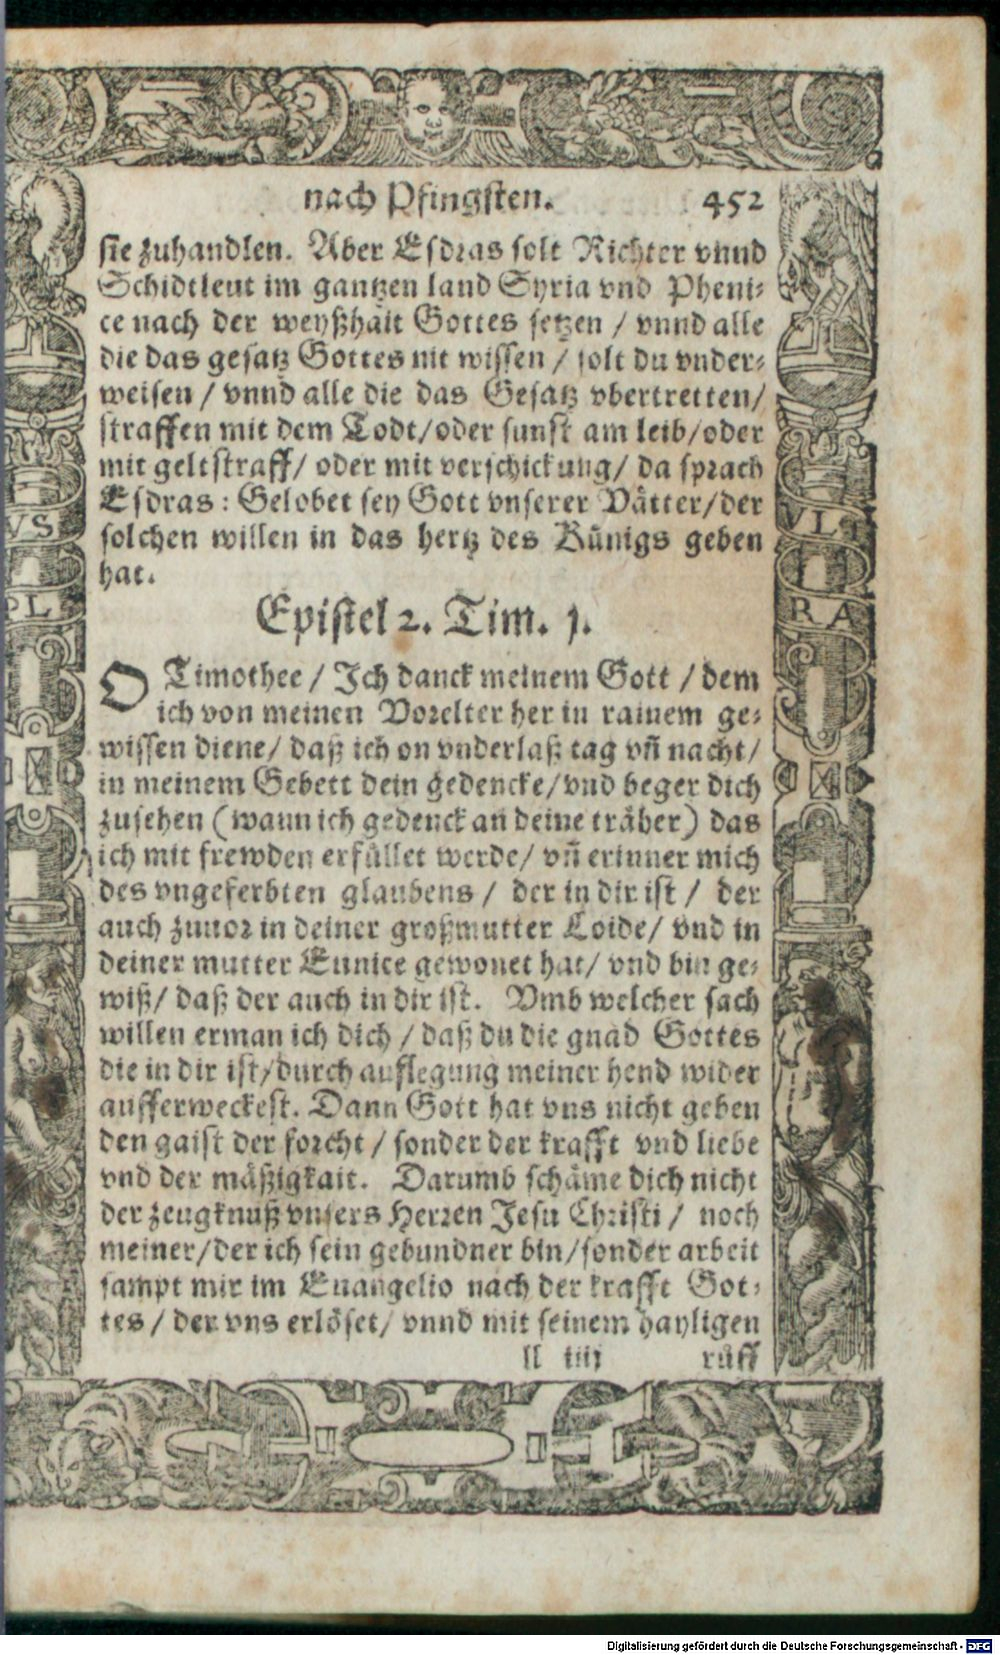 nach Pfingsten. 452
sie zuhandlen. Aber Esdras solt Richter vnnd
Schidtleut im gantzen land Syria vnd Pheni-
ce nach der weyßhait Gottes setzen / vnnd alle
die das gesatz Gottes nit wissen / solt du vnder-
weisen / vnnd alle die das Gesatz vbertretten/
straffen mit dem Todt/oder sunst am leib/oder
mit geltstraff/ oder mit verschickung/ da sprach
Esdras : Gelobet sey Gott vnserer Vätter/der
solchen willen in das hertz des Künigs geben
hat.
Epistel 2. Tim. j.
O Timothee / Ich danck meinem Gott / dem
ich von meinen Vorelter her in rainem ge-
wissen diene/ daß ich on vnderlaß tag vñ nacht/
in meinem Gebett dein gedencke/vnd beger dich
zusehen (wann ich gedenck an deine träher) das
ich mit frewden erfüllet werde/ vñ erinner mich
des vngeferbten glaubens / der in dir ist / der
auch zuuor in deiner großmutter Loide/ vnd in
deiner mutter Eunice gewonet hat/ vnd bin ge-
wiß/ daß der auch in dir ist. Vmb welcher sach
willen erman ich dich / daß du die gnad Gottes
die in dir ist/durch auflegung meiner hend wider
aufferweckest. Dann Gott hat vns nicht geben
den gaist der forcht / sonder der krafft vnd liebe
vnd der mäßigkait. Darumb schäme dich nicht
der zeugknuß vnsers Herren Jesu Christi / noch
meiner/der ich sein gebundner bin/sonder arbeit
sampt mir im Euangelio nach der krafft Got-
tes / der vns erlöset/ vnnd mit seinem hayligen
ll iiij rüff
VS
PL
VLT
RA
Digitalisierung gefördert durch die Deutsche Forschungsgemeinschaft - DFG